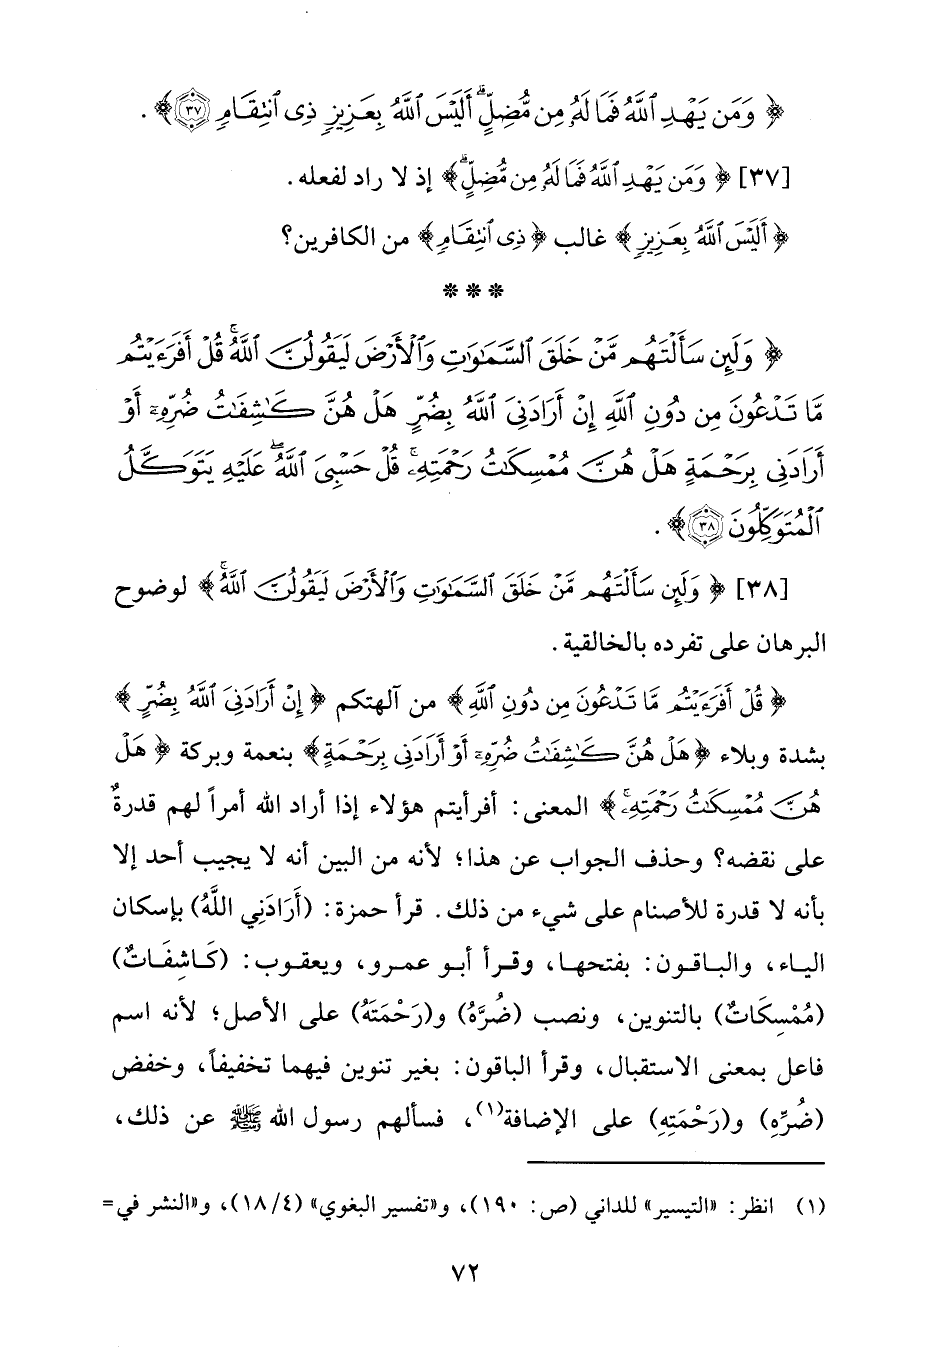 ﴿ وَمَن يَهْدِ ٱللَّهُ فَمَا لَهُۥ مِن مُّضِلٍّ ۗ أَلَيْسَ ٱللَّهُ بِعَزِيزٍ ذِى ٱنتِقَامٍ ۝٣٧ ﴾ .
[٣٧] ﴿ وَمَن يَهْدِ ٱللَّهُ فَمَا لَهُۥ مِن مُّضِلٍّ ۗ ﴾ إذ لا راد لفعله .
﴿ أَلَيْسَ ٱللَّهُ بِعَزِيزٍ ﴾ غالب ﴿ ذِى ٱنتِقَامٍ ﴾ من الكافرين؟
* * *
﴿ وَلَئِن سَأَلْتَهُم مَّنْ خَلَقَ ٱلسَّمَـٰوَٰتِ وَٱلْأَرْضَ لَيَقُولُنَّ ٱللَّهُ ۚ قُلْ أَفَرَءَيْتُم
مَّا تَدْعُونَ مِن دُونِ ٱللَّهِ إِنْ أَرَادَنِىَ ٱللَّهُ بِضُرٍّ هَلْ هُنَّ كَـٰشِفَـٰتُ ضُرِّهِۦٓ أَوْ
أَرَادَنِى بِرَحْمَةٍ هَلْ هُنَّ مُمْسِكَـٰتُ رَحْمَتِهِۦ ۚ قُلْ حَسْبِىَ ٱللَّهُ ۖ عَلَيْهِ يَتَوَكَّلُ
ٱلْمُتَوَكِّلُونَ ۝٣٨ ﴾ .
[٣٨] ﴿ وَلَئِن سَأَلْتَهُم مَّنْ خَلَقَ ٱلسَّمَـٰوَٰتِ وَٱلْأَرْضَ لَيَقُولُنَّ ٱللَّهُ ۚ ﴾ لوضوح
البرهان على تفرده بالخالقية .
﴿ قُلْ أَفَرَءَيْتُم مَّا تَدْعُونَ مِن دُونِ ٱللَّهِ ﴾ من آلهتكم ﴿ إِنْ أَرَادَنِىَ ٱللَّهُ بِضُرٍّ ﴾
بشدة وبلاء ﴿ هَلْ هُنَّ كَـٰشِفَـٰتُ ضُرِّهِۦٓ أَوْ أَرَادَنِى بِرَحْمَةٍ ﴾ بنعمة وبركة ﴿ هَلْ
هُنَّ مُمْسِكَـٰتُ رَحْمَتِهِۦ ۚ ﴾ المعنى: أفرأيتم هؤلاء إذا أراد الله أمراً لهم قدرةٌ
على نقضه؟ وحذف الجواب عن هذا؛ لأنه من البين أنه لا يجيب أحد إلا
بأنه لا قدرة للأصنام على شيء من ذلك. قرأ حمزة: (أَرَادَنِي اللَّهُ) بإسكان
الياء، والباقون: بفتحها، وقرأ أبو عمرو، ويعقوب: (كَاشِفَاتٌ)
(مُمْسِكَاتٌ) بالتنوين، ونصب (ضُرَّهُ) و(رَحْمَتَهُ) على الأصل؛ لأنه اسم
فاعل بمعنى الاستقبال، وقرأ الباقون: بغير تنوين فيهما تخفيفاً، وخفض
(ضُرِّهِ) و(رَحْمَتِهِ) على الإضافة(١)، فسألهم رسول الله ﷺ عن ذلك،
(١) انظر: «التيسير» للداني (ص: ١٩٠)، و«تفسير البغوي» (١٨/٤)، و«النشر في=
٧٢